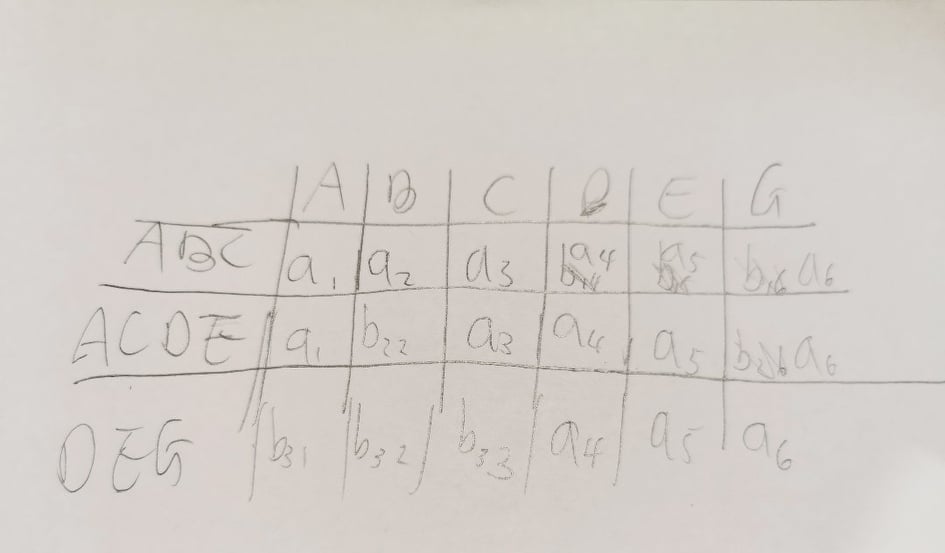 A B C D E G
ABC a₁ a₂ a₃ a₄ a₅ b₁₆ a₆
ACDE a₁ b₂₂ a₃ a₄ a₅ b₂₆ a₆
DEG b₃₁ b₃₂ b₃₃ a₄ a₅ a₆